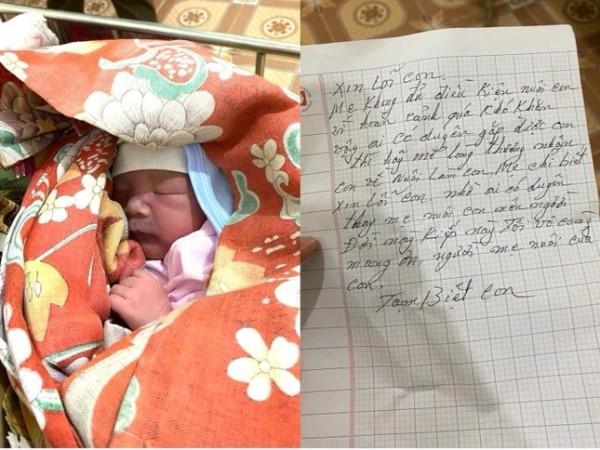 Xin Lỗi con.
Mẹ Không đủ điều Kiện nuôi con
vì hoàn cảnh quá Khó Khăn
vậy ai có duyên gặp được con
thì hãy mở lòng thương nhận
con về Nuôi Làm con Mẹ chỉ biết
Xin Lỗi con, nhờ ai có duyên
thay mẹ nuôi con nên người
Đời này Kiếp này Tôi vô cùng
mang ơn người mẹ nuôi của
con.
Tạm Biệt con